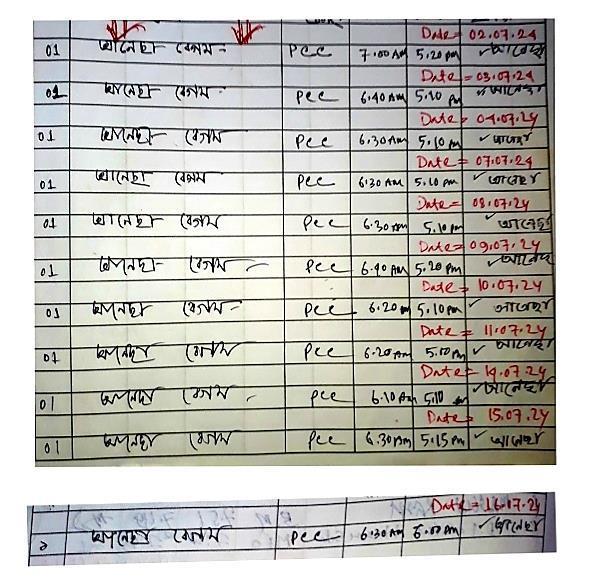 Date = 02.07.24
01 আনেছা বেগম - Pcc 7.00 Am 5.20 pm ✓ আনেছা
Date = 03.07.24
01 আনেছা বেগম - Pcc 6.40 Am 5.10 pm আনেছা
Date = 04.07.24
01 আনেছা বেগম Pcc 6.30 Am 5.10 pm ✓ আনেছা
Date = 07.07.24
01 আনেছা বেগম Pcc 6.30 Am 5.10 pm ✓ আনেছা
Date = 08.07.24
01 আনেছা বেগম Pcc 6.30 Am 5.10 pm ✓ আনেছা
Date = 09.07.24
01 আনেছা বেগম - Pcc 6.40 Am 5.20 pm ✓ আনেছা
Date = 10.07.24
01 আনেছা বেগম - Pcc 6.20 5.10 pm ✓ আনেছা
Date = 11.07.24
01 আনেছা বেগম Pcc 6.20 Am 5.10 pm ✓ আনেছা
Date = 14.07.24
01 আনেছা বেগম - Pcc 6.10 Am 5.10 ✓ আনেছা
Date = 15.07.24
01 আনেছা বেগম Pcc 6.30 Am 5.15 pm ✓ আনেছা
Date = 16.07.24
আনেছা বেগম Pcc 6.30 Am 6.00 pm ✓ আনেছা